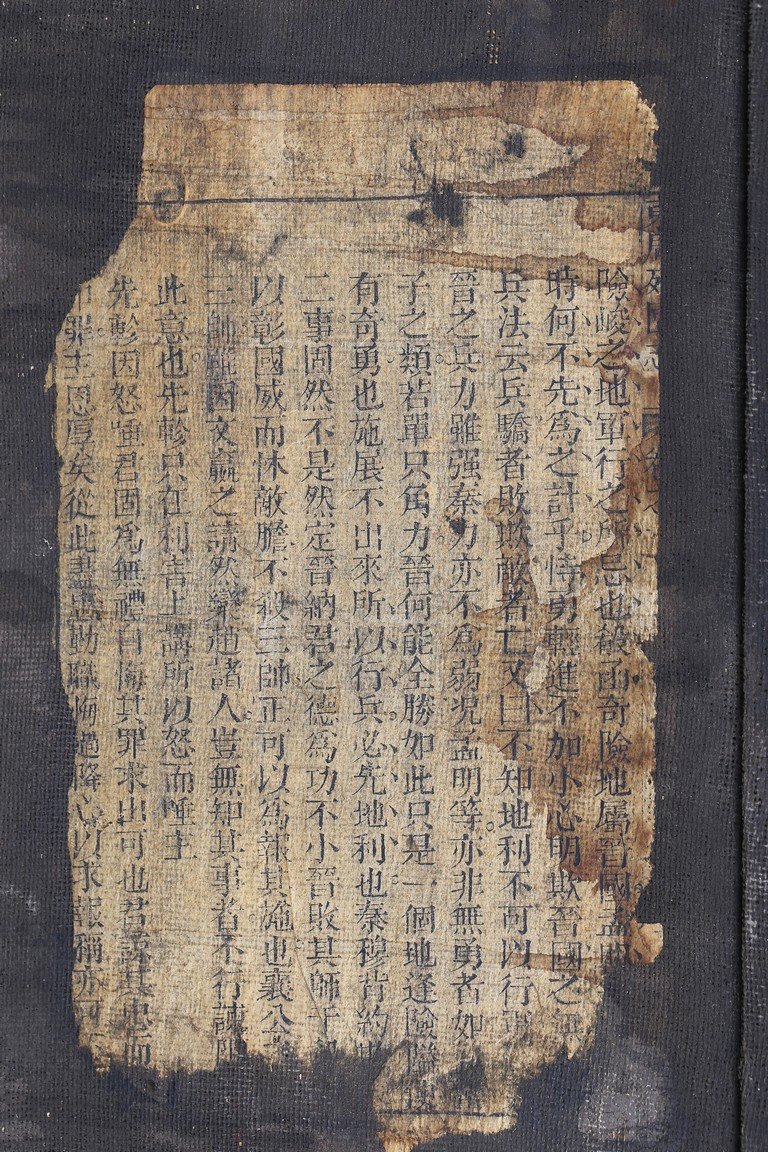 險峻之地軍行之所忌也殽函奇險地屬晉國孟
時何不先爲之計乎恃勇輕進不加小心明欺晉國之無
兵法云兵驕者敗欺敵者亡又曰不知地利不可以行軍
晉之兵力雖强秦力亦不爲弱况孟明等亦非無勇者如
子之類若單只角力晉何能全勝如此只是一個地逢險隘
有奇勇也施展不出來所以行兵必先地利也秦穆背約
二事固然不是然定晉納君之德爲功不小晉敗其師于
以彰國威而怵敵膽不殺三帥正可以爲報其施也襄公
三帥雖因文嬴之請然欒趙諸人豈無知其事者不行諫阻
此意也先軫只在利害上講所以怒而唾主
先軫因怒唾君固爲無禮自悔其罪求出可也君諒其忠而
罪主恩厚矣從此盡勤職悔過降心以求報稱亦可